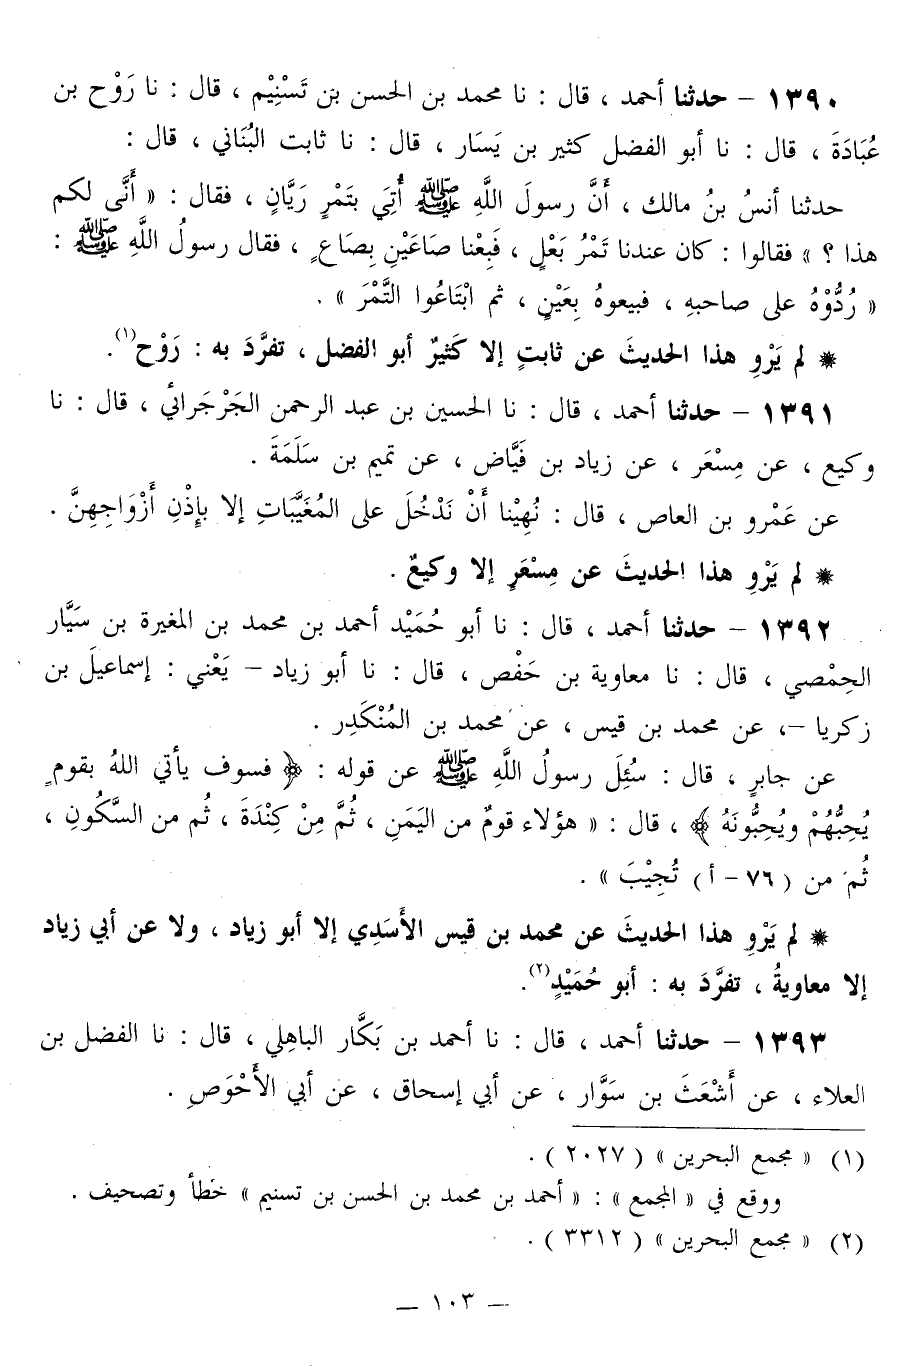 ١٣٩٠ – حدثنا أحمد ، قال : نا محمد بن الحسن بن تَسْنِيْم ، قال : نا رَوْح بن
عُبَادَةَ ، قال : نا أبو الفضل كثير بن يَسَار ، قال : نا ثابت البُنَاني ، قال :
حدثنا أنسُ بنُ مالك ، أَنَّ رسولَ اللَّهِ ﷺ أُتِيَ بتَمْرٍ رَيَّانٍ ، فقال : « أَنَّى لكم
هذا ؟ » فقالوا : كان عندنا تَمْرُ بَعْلٍ ، فَبِعْنا صَاعَيْنِ بِصَاعٍ ، فقال رسولُ اللَّهِ ﷺ :
« رُدُّوْهُ على صاحبهِ ، فبيعوهُ بِعَيْنٍ ، ثم ابْتَاعُوا التَّمْرَ » .
* لم يَرْوِ هذا الحديثَ عن ثابتٍ إلا كَثيرٌ أبو الفضل ، تفرَّدَ به : رَوْح(١).
١٣٩١ – حدثنا أحمد ، قال : نا الحسين بن عبد الرحمن الجَرْجَرائي ، قال : نا
وكيع ، عن مِسْعَر ، عن زياد بن فَيَّاض ، عن تميم بن سَلَمَةَ .
عن عَمْرو بن العاص ، قال : نُهِيْنا أَنْ نَدْخُلَ على المُغَيَّبَاتِ إلا بإِذْنِ أَزْوَاجِهِنَّ .
* لم يَرْوِ هذا الحديثَ عن مِسْعَرٍ إلا وكيعٌ .
١٣٩٢ – حدثنا أحمد ، قال : نا أبو حُمَيْد أحمد بن محمد بن المغيرة بن سَيَّار
الحِمْصي ، قال : نا معاوية بن حَفْص ، قال : نا أبو زياد – يَعْني : إسماعيلَ بن
زكريا –، عن محمد بن قيس ، عن محمد بن المُنْكَدِر .
عن جابرٍ ، قال : سُئِلَ رسولُ اللَّهِ ﷺ عن قوله : ﴿ فسوف يأتي اللهُ بقومٍ
يُحِبُّهُمْ ويُحِبُّونَهُ ﴾ ، قال : « هؤلاء قومٌ من اليَمَنِ ، ثُمَّ مِنْ كِنْدَةَ ، ثُم من السَّكُونِ ،
ثُم من ( ٧٦ – أ ) تُجِيْبَ » .
* لم يَرْوِ هذا الحديثَ عن محمد بن قيس الأَسَدِي إلا أبو زياد ، ولا عن أبي زياد
إلا معاويةُ ، تفرَّدَ به : أبو حُمَيْدٍ(٢).
١٣٩٣ – حدثنا أحمد ، قال : نا أحمد بن بَكَّار الباهِلي ، قال : نا الفضل بن
العلاء ، عن أَشْعَثَ بن سَوَّار ، عن أبي إسحاق ، عن أبي الأَحْوَصِ .
(١) « مجمع البحرين » ( ٢٠٢٧ ) .
ووقع في « المجمع » : « أحمد بن محمد بن الحسن بن تسنيم » خطأ وتصحيف .
(٢) « مجمع البحرين » ( ٣٣١٢ ) .
– ١٠٣ –